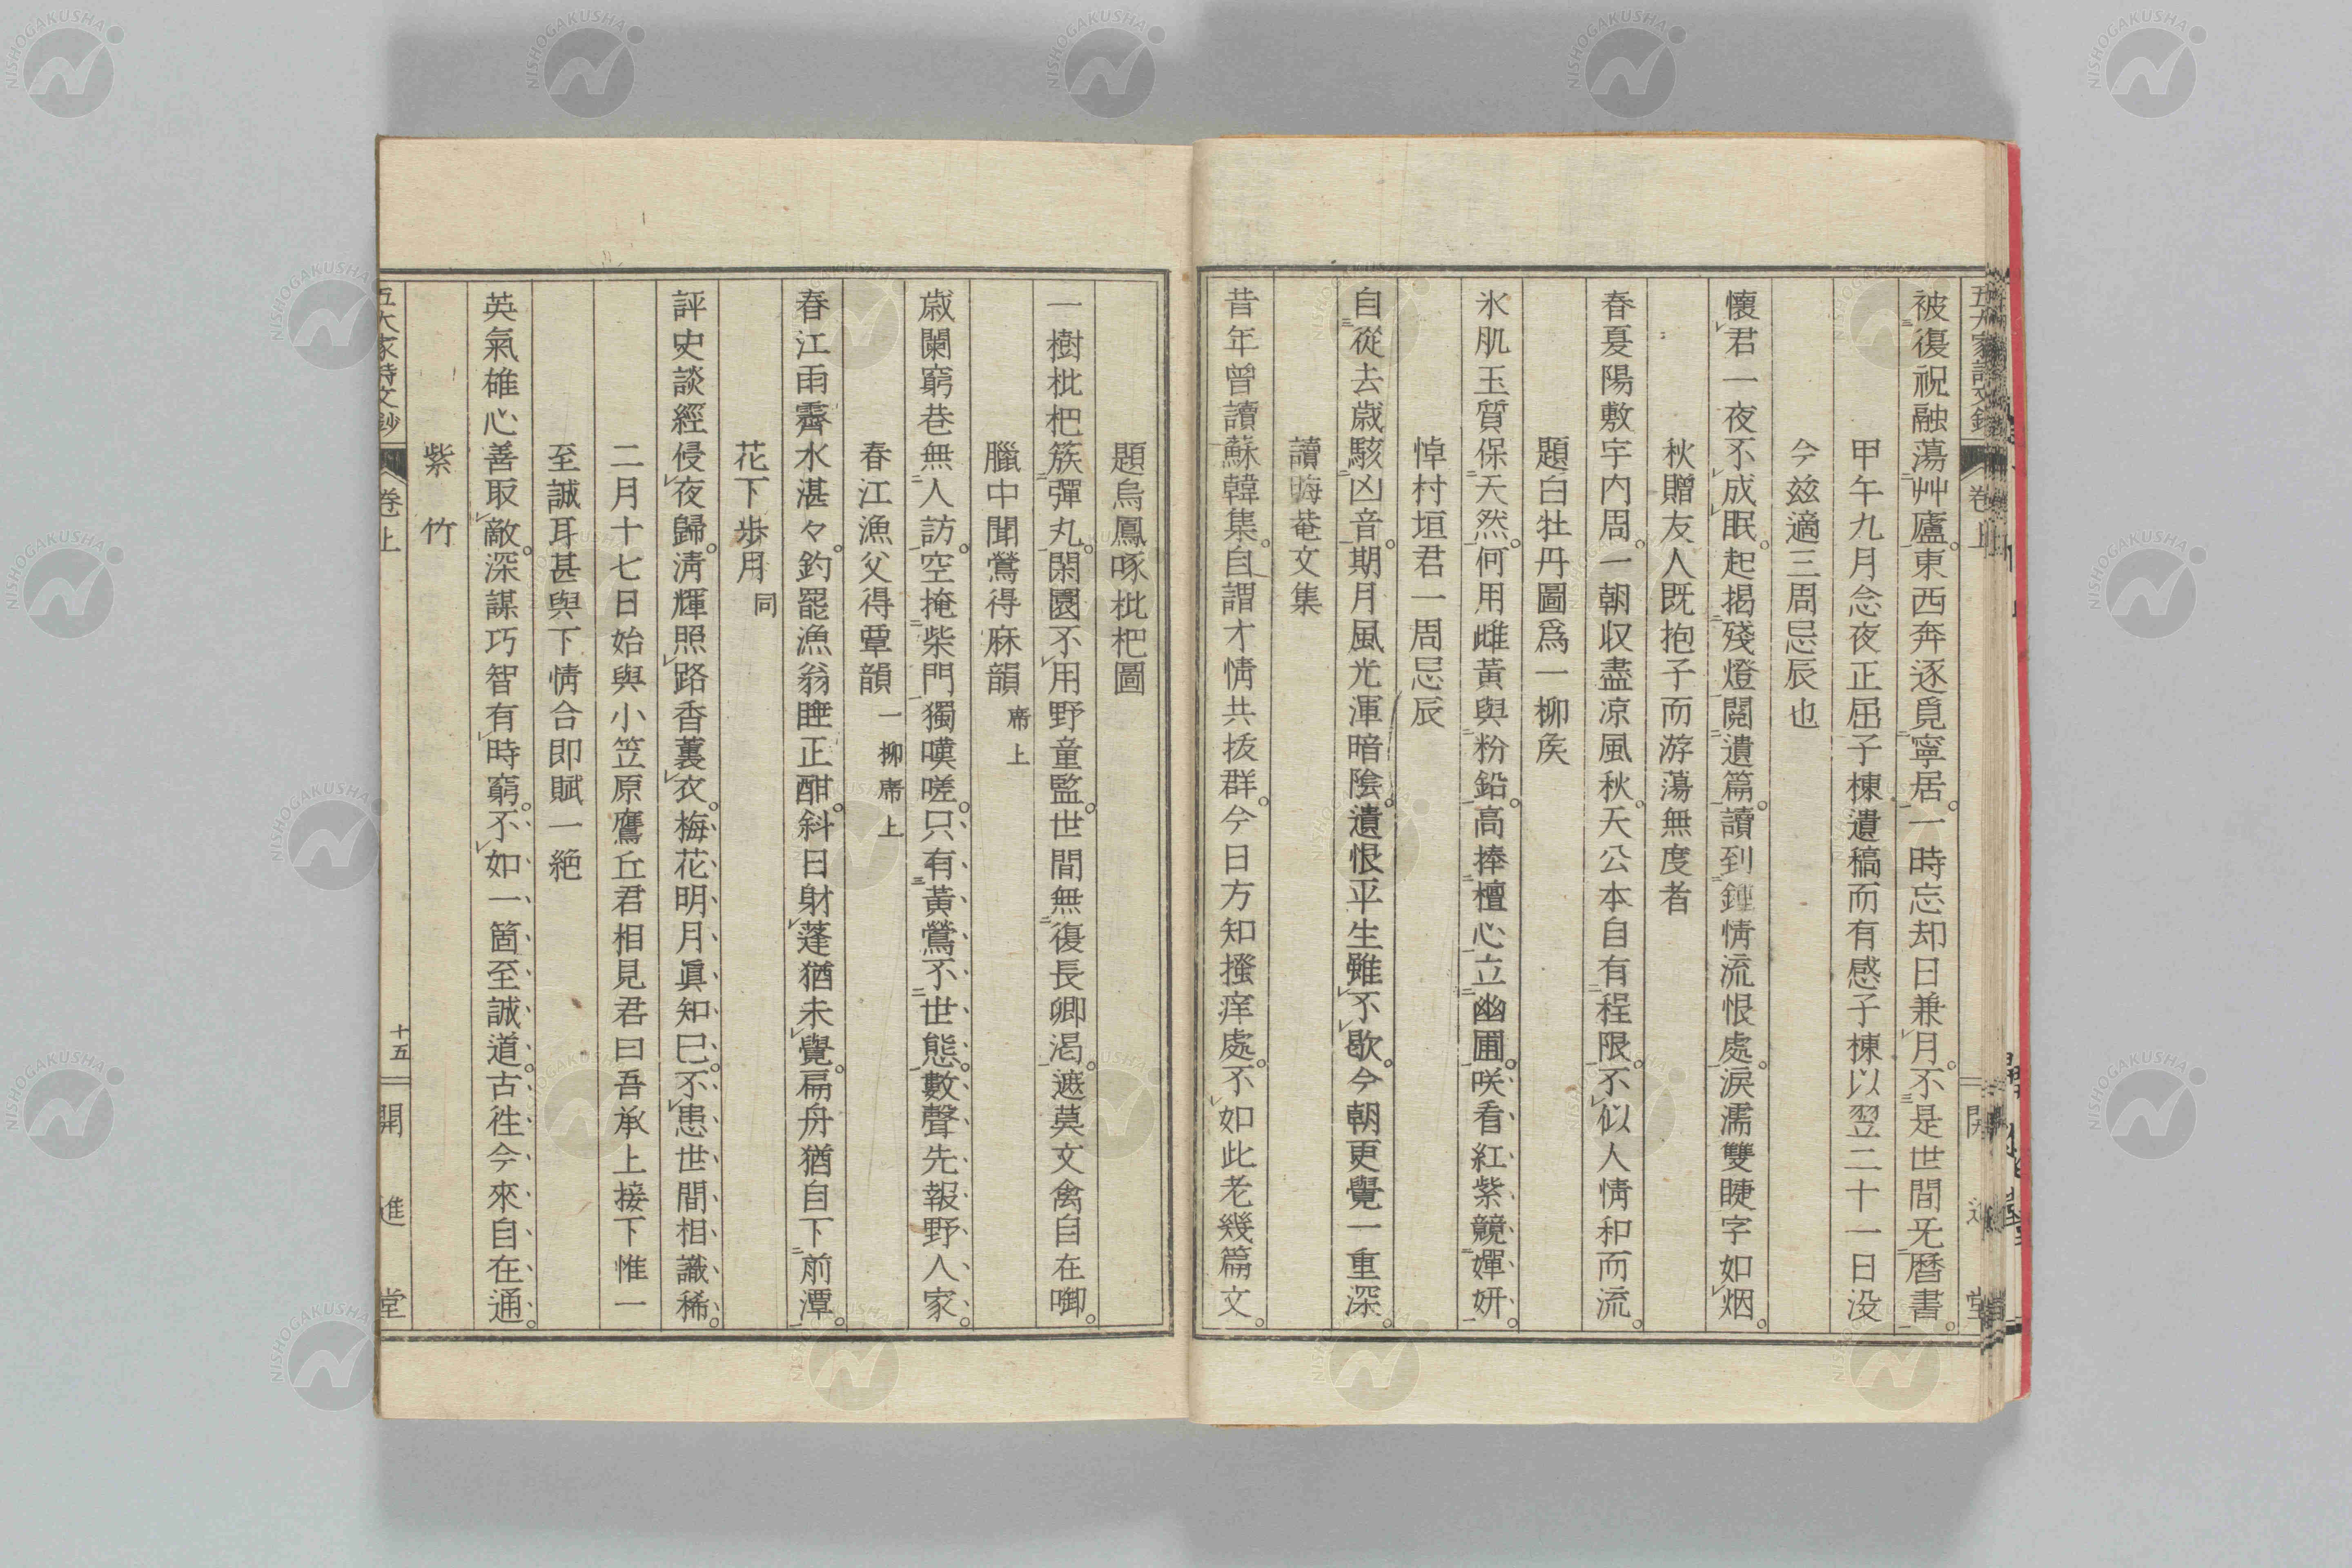 被復祝融蕩艸廬。東西奔逐覓寧居。一時忘却日兼月。不是世間无暦書。
甲午九月念夜正屈子棟遺稿而有感子棟以翌二十一日没
今玆適三周忌辰也
懷君一夜不成眠。起掲殘燈閲遺篇。讀到鍾情流恨處。涙濡雙睫字如烟。
秋贈友人既抱子而游蕩無度者
春夏陽敷宇内周。一朝収盡凉風秋。天公本自有程限。不似人情和而流。
題白牡丹圖爲一柳矦
氷肌玉質保天然。何用雌黃與粉鉛。高捧檀心立幽圃。咲看紅紫競嬋妍。
悼村垣君一周忌辰
自從去歳駭凶音。期月風光渾暗陰。遺恨平生雖不歇。今朝更覺一重深。
讀晦菴文集
昔年曾讀蘇韓集。自謂才情共拔群。今日方知搔痒處。不如此老幾篇文。
題烏鳳啄枇杷圖
一樹枇杷簇彈丸。閑園不用野童監。世間無復長卿渴。遮莫文禽自在啣。
臘中聞鶯得麻韻 席上
歳闌窮巷無人訪。空掩柴門獨嘆嗟。只有黃鶯不世態。數聲先報野人家。
春江漁父得覃韻 一柳席上
春江雨霽水湛々。釣罷漁翁睡正酣。斜日射蓬猶未覺。扁舟猶自下前潭。
花下歩月 同
評史談經侵夜歸。淸輝照路香裏衣。梅花明月眞知己。不患世間相識稀。
二月十七日始與小笠原鷹丘君相見君曰吾承上接下惟一
至誠耳甚與下情合即賦一絶
英氣碓心善取敵。深謀巧智有時窮。不如一箇至誠道。古徃今來自在通。
紫竹
五大家詩文鈔 卷上 十五 開進堂